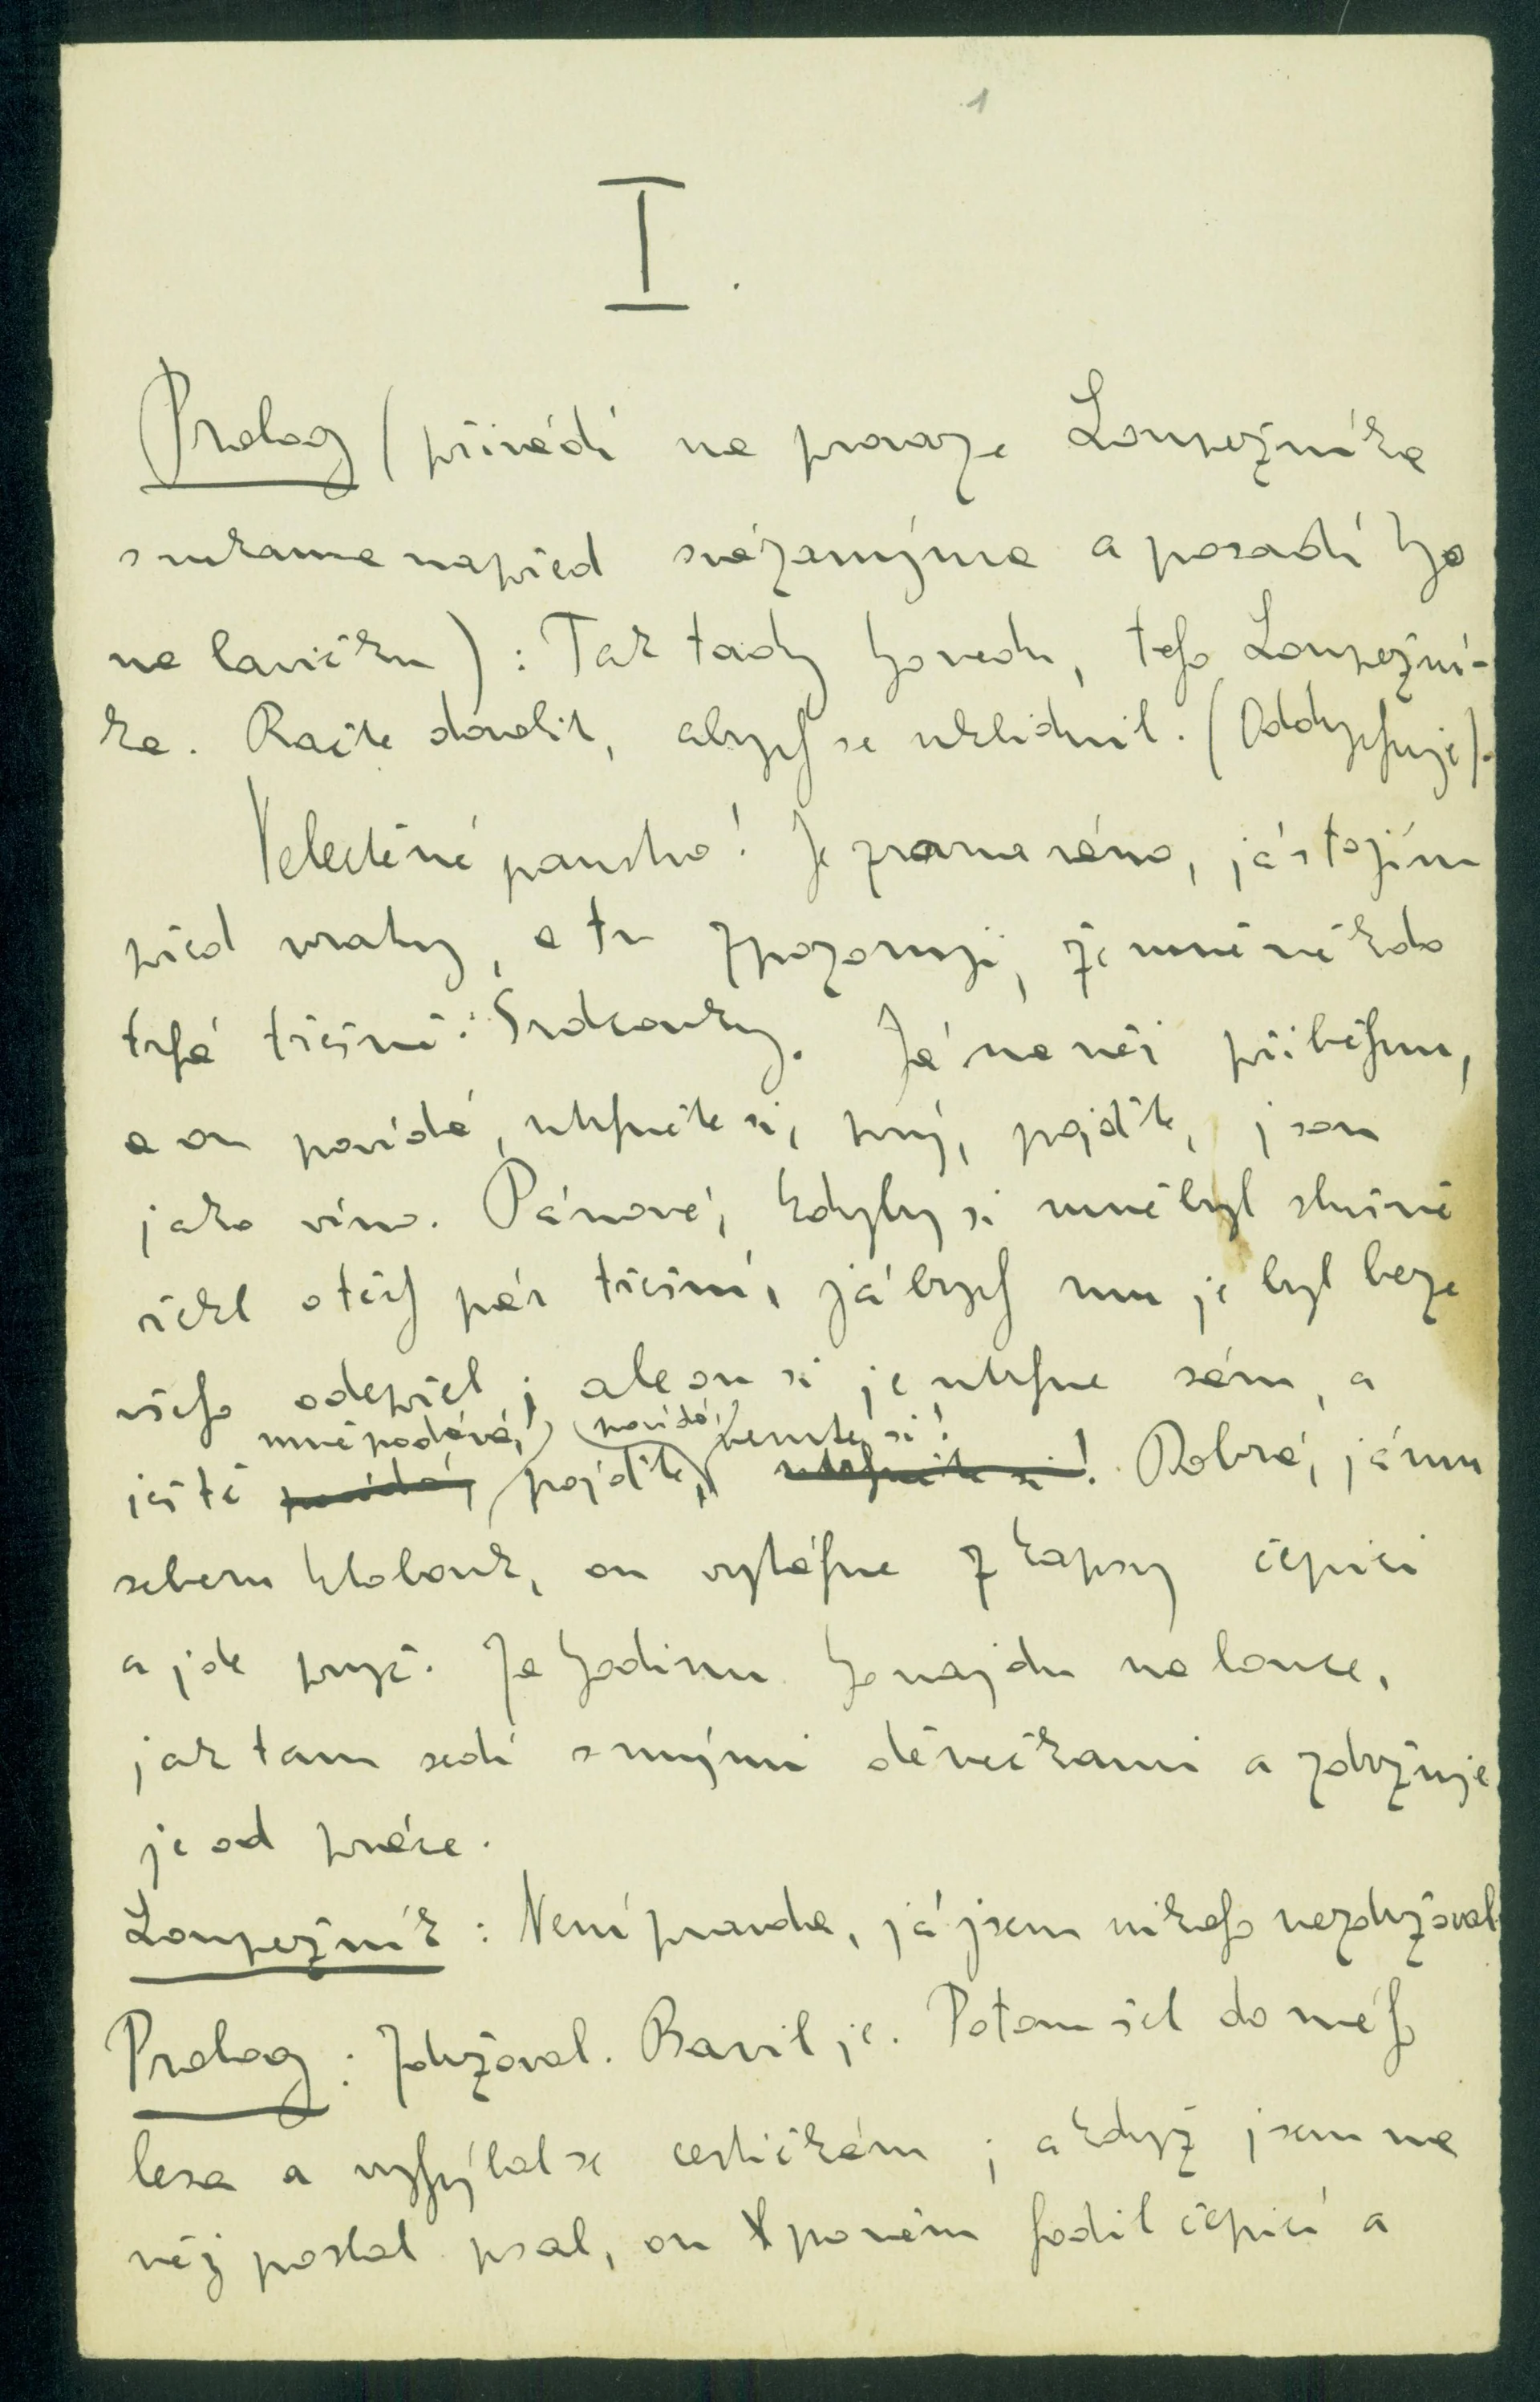 1
I.
Prolog (přivádí na provaze Loupežníka
s rukama napřed svázanýma a posadí ho
na lavičku): Tak tady ho vedu, toho Loupežní-
ka. Račte dovolit, abych se uklidnil. (Oddychuje).
Velectěné panstvo! Je zrovna ráno, já stojím
před vraty, a tu zpozoruji, že mně někdo
trhá třešně: Srdcovky. Já na něj přiběhnu,
a on povídá, utrhněte si, prý, pojďte, jsou
jako víno. Pánové, kdyby si mně byl slušně
řekl o těch pár třešní, já bych mu je byl beze
všeho odepřel; ale on si je utrhne sám, a
mně podává, povídá, vemte si!
ještě povídá, pojďte, utrhněte si! Dobrá, já mu
seberu klobouk, on vytáhne z kapsy čepici
a jde pryč. Za hodinu ho najdu na louce,
jak tam sedí s mými děvečkami a zdržuje
je od práce.
Loupežník: Není pravda, já jsem nikoho nezdržoval.
Prolog: Zdržoval. Bavil je. Potom šel do mého
lesa a vyhýbal se cestičkám; a když jsem na
něj poslal psa, on po něm hodil čepicí a